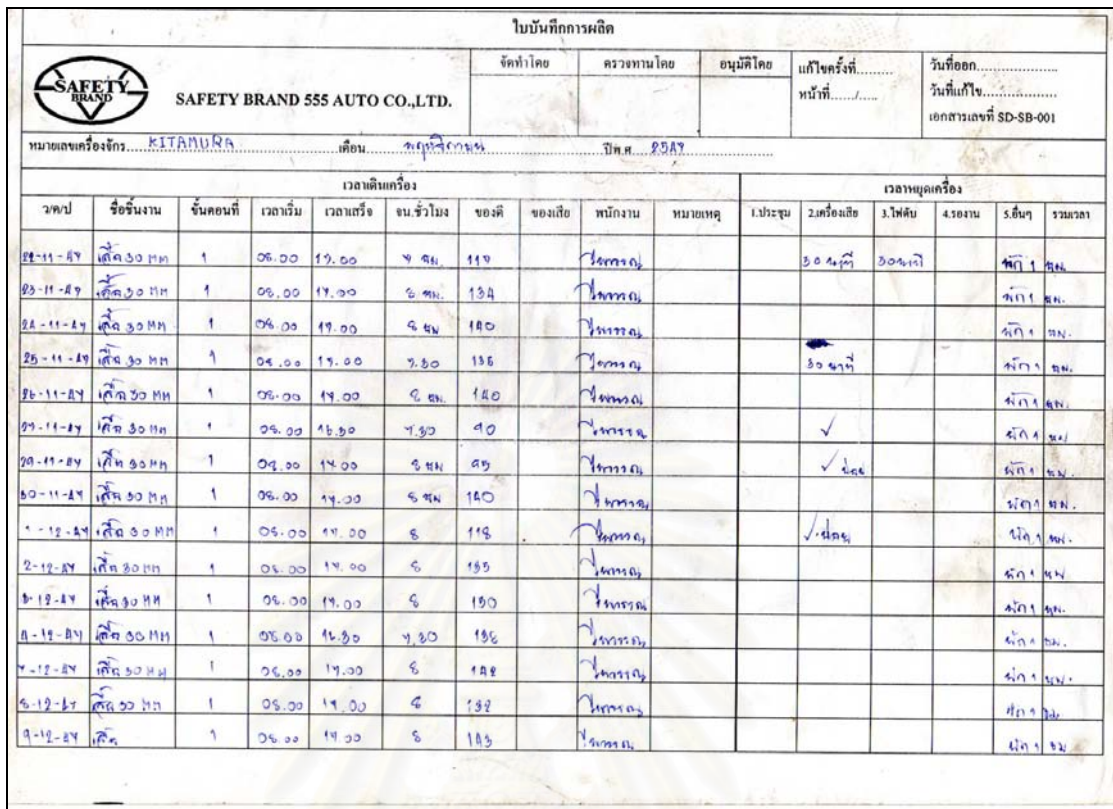 ใบบันทึกการผลิต
SAFETY BRAND
SAFETY BRAND 555 AUTO CO.,LTD.
จัดทำโดย ตรวจทานโดย อนุมัติโดย
แก้ไขครั้งที่..........
หน้าที่....../......
วันที่ออก....................
วันที่แก้ไข..................
เอกสารเลขที่ SD-SB-001
หมายเลขเครื่องจักร KITAMURA เดือน พฤศจิกายน ปีพ.ศ. 2547
เวลาเดินเครื่อง เวลาหยุดเครื่อง
ว/ด/ป ชื่อชิ้นงาน ขั้นตอนที่ เวลาเริ่ม เวลาเสร็จ จน.ชั่วโมง ของดี ของเสีย พนักงาน หมายเหตุ 1.ประชุม 2.เครื่องเสีย 3.ไฟดับ 4.รองาน 5.อื่นๆ รวมเวลา
22-11-47 30 MM 1 08.00 17.00 30 นาที 30 นาที พัก 1 ชม.
23-11-47 30 MM 1 08.00 17.00 8 ชม. 134 พัก 1 ชม.
24-11-47 30 MM 1 08.00 17.00 8 ชม 140 พัก 1 ชม.
25-11-47 30 MM 1 08.00 7.30 136 30 นาที พัก 1 ชม.
26-11-47 30 MM 1 08.00 17.00 8 ชม. 140 พัก 1 ชม.
30 MM 1 08.00 16.30 7.30 90 ✓ พัก 1 ชม
29-11-47 30 MM 1 08.00 17.00 8 ชม 95 ✓ พัก 1 ชม.
30-11-47 30 MM 1 08.00 17.00 8 ชม 140 พัก 1 ชม.
1-12-47 30 MM 1 08.00 17.00 8 118 ✓ พัก 1 ชม.
2-12-47 30 MM 1 08.00 17.00 8 135 พัก 1 ชม
3-12-47 30 MM 1 08.00 17.00 8 130 พัก 1 ชม.
4-12-47 30 MM 1 08.00 16.30 7.30 138 พัก 1 ชม.
7-12-47 30 MM 1 08.00 17.00 8 142 พัก 1 ชม.
8-12-47 30 MM 1 08.00 17.00 8 132 พัก 1 ชม
9-12-47 1 08.00 17.00 8 143 พัก 1 ชม